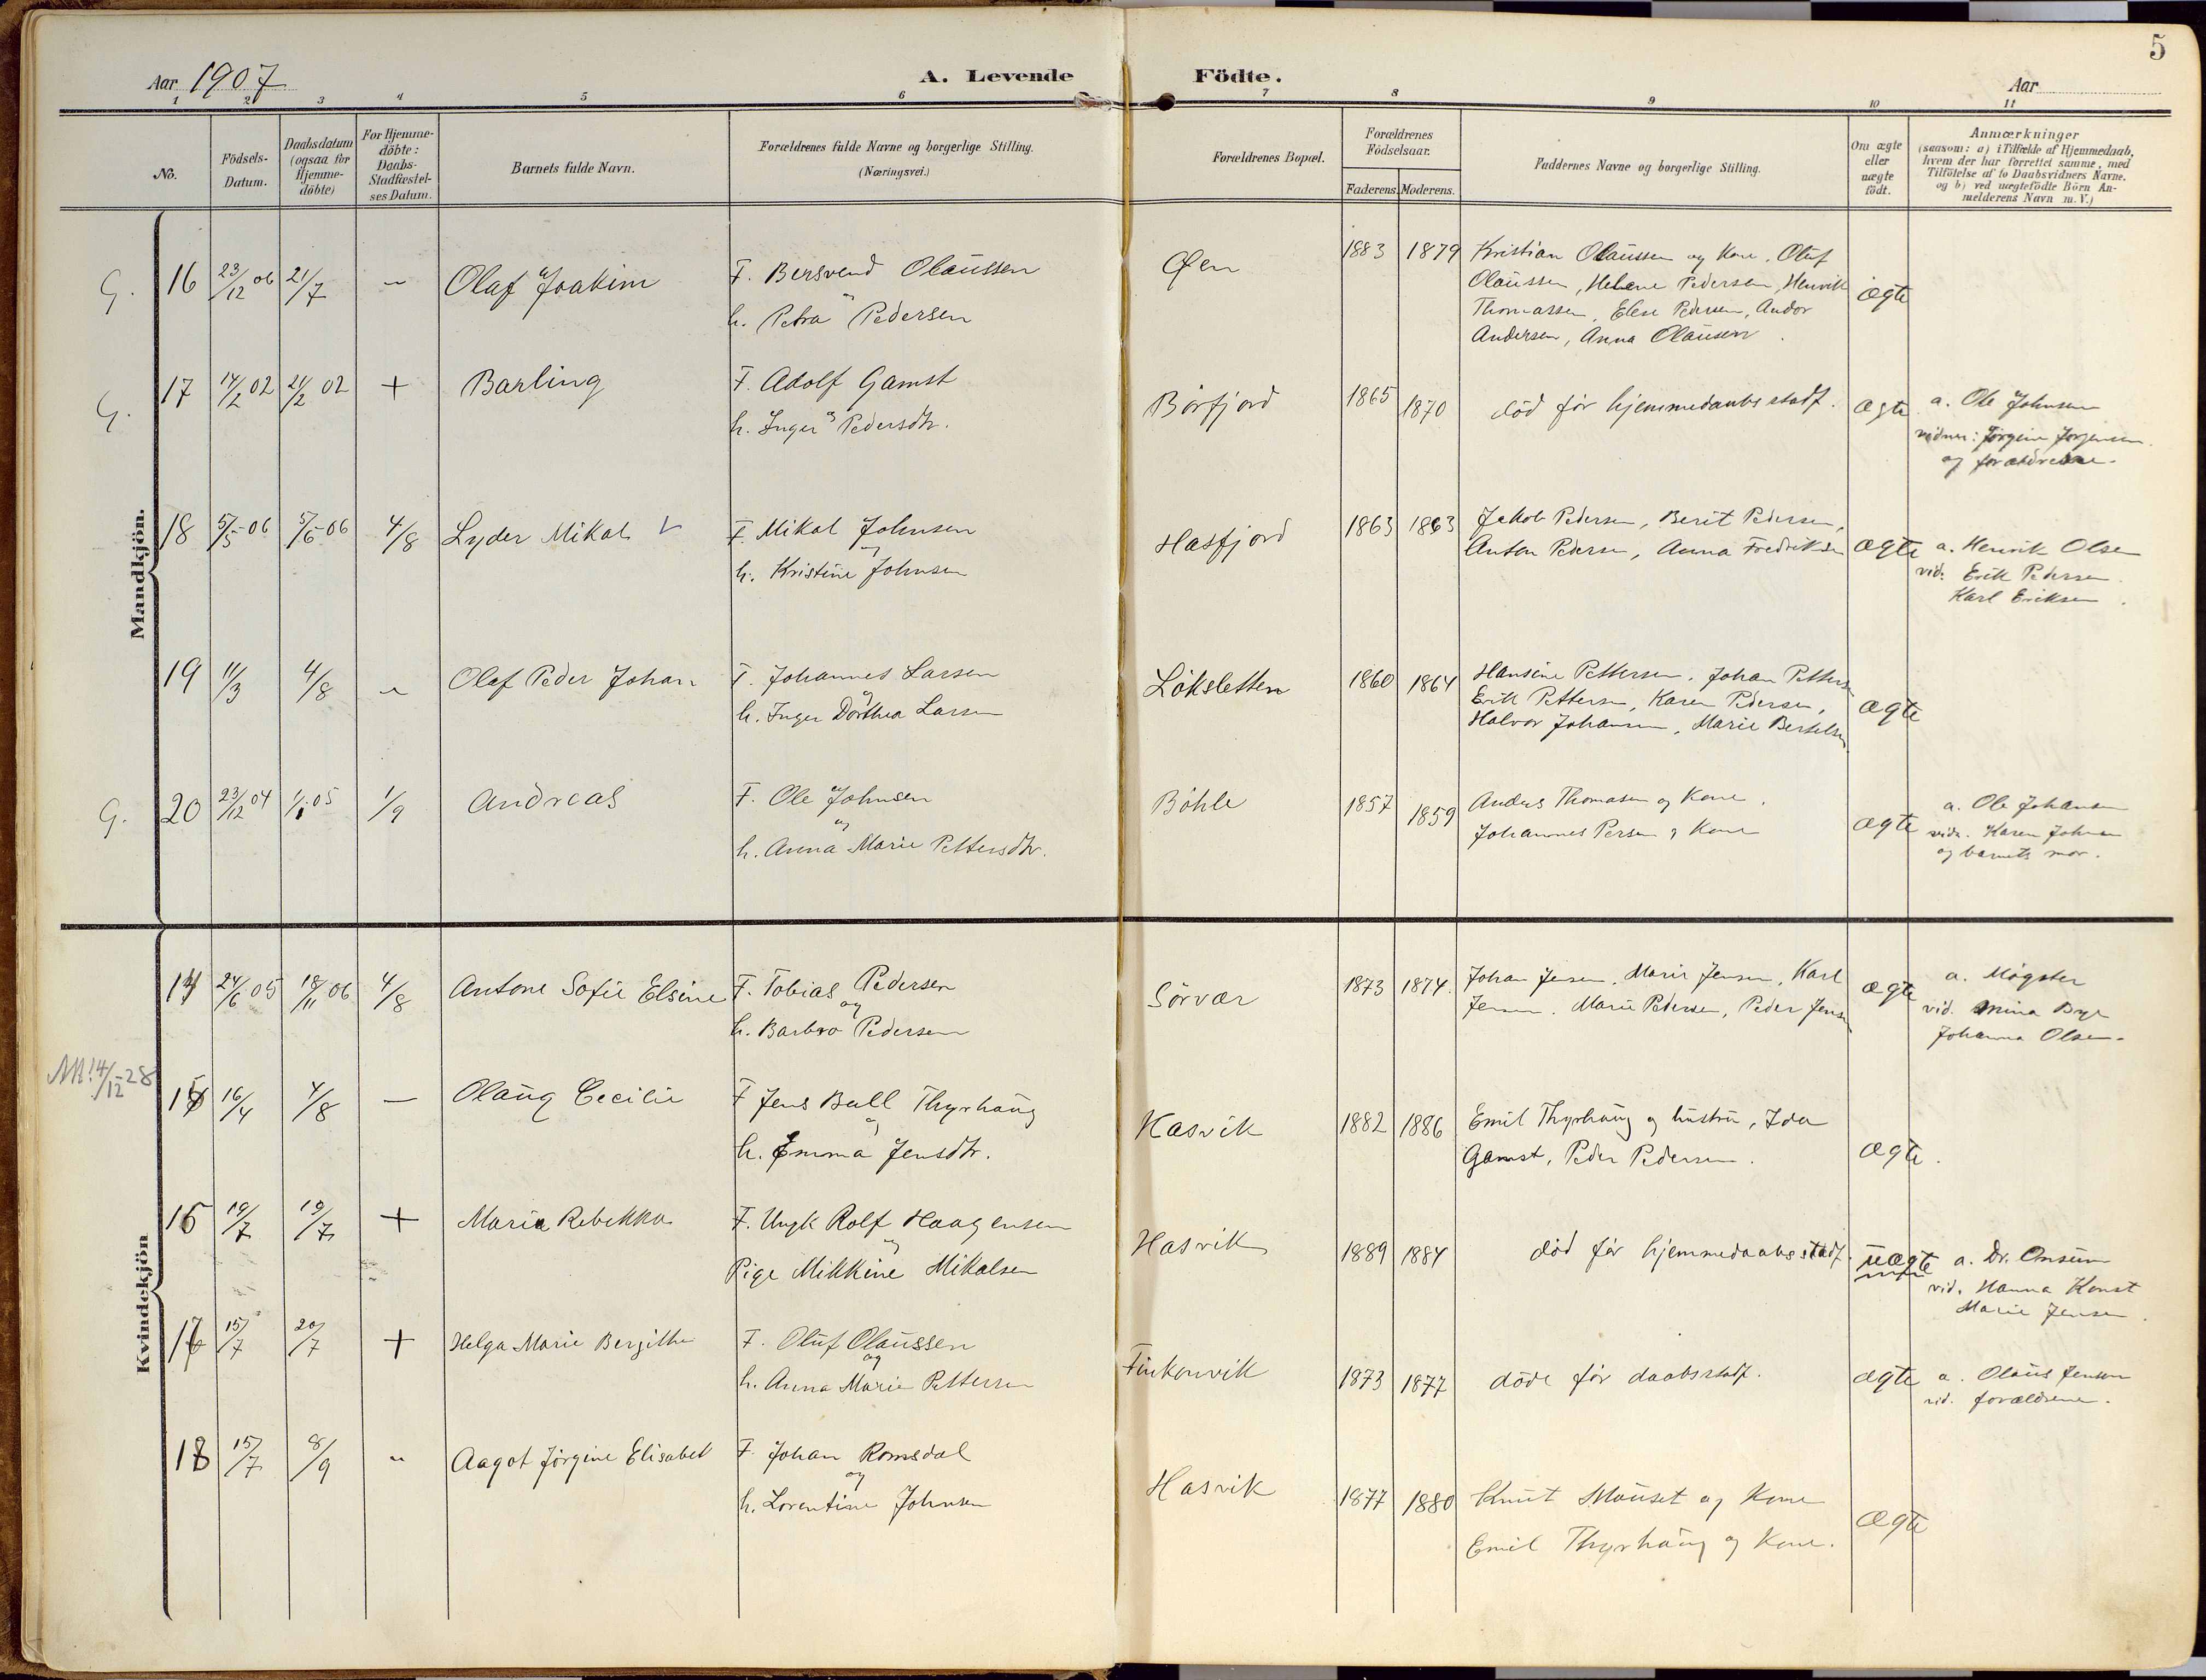 5
Aar 1907
A. Levende Födte.
Aar
1 2 3 4 5 6 7 8 9 10 11
No.
Födsels-Datum.
Daabsdatum (ogsaa for Hjemme-döbte)
For Hjemme-döbte: Daabs-Stadfæstel-ses Datum.
Barnets fulde Navn.
Forældrenes fulde Navne og borgerlige Stilling. (Næringsvei.)
Forældrenes Bopæl.
Forældrenes Födselsaar.
Faderens. Moderens.
Faddernes Navne og borgerlige Stilling.
Om ægte eller uægte födt.
Anmærkninger
(saasom: a) i Tilfælde af Hjemmedaab, hvem der har forrettet samme, med Tilföielse af to Daabsvidners Navne. og b) ved uægtefödte Börn An-melderens Navn m. V.)
Mandkjön.
G. 16 23/12 06 21/7 - Olaf Joakim
F. Bersvend Olaussen
og
h. Petra Pedersen
Øen 1883 1879
Kristian Olaussen og Kone, Oluf
Olaussen, Helene Pedersen, Henrik
Thomassen, Elese Pedersen, Andor
Andersen, Anna Olausen.
ægte
G. 17 14/2 02 21/2 02 + Barling
F. Adolf Gamst
og
h. Inger Pedersdtr.
Börfjord 1865 1870
död för hjemmedaabs stadf.
ægte
a. Ole Johnsen
vidner: Jörgine Jorgensen
og forældrene.
18 5/5 06 5/6 06 4/8 Lyder Mikal
F. Mikal Johnsen
og
h. Kristine Johnsen
Hasfjord 1863 1863
Jakob Pedersen, Berit Pedersen,
Anton Pedersen, Anna Fredriksen
ægte
a. Henrik Olsen
vid. Erik Pedersen.
Karl Eriksen.
19 11/3 4/8 - Olaf Peder Johan
F. Johannes Larsen
og
h. Inger Dorthea Larsen
Löksletten 1860 1864
Hansine Pettersen, Johan Pettersen
Erik Pettersen, Karen Pedersen,
Halvor Johansen, Marie Bertelsen
ægte
G. 20 23/12 04 1/1 05 1/9 Andreas
F. Ole Johnsen
og
h. Anna Marie Pettersdtr.
Böhle 1857 1859
Anders Thomasen og Kone.
Johannes Persen og Kone
ægte
a. Ole Johansen
vidn. Karen Johnsen
og barnets mor.
Kvindekjön
14 24/6 05 18/11 06 4/8 Antone Sofie Elsine
F. Tobias Pedersen
og
h. Barbro Pedersen
Sörvær 1873 1874.
Johan Jensen, Marie Jensen, Karl
Jensen, Marie Pedersen, Peder Jensen
ægte
a. Mögster
vid. Mina Bye
Johanna Olsen.
M! 4/12-28
15 16/4 4/8 - Olaug Cecilie
F Jens Ball Thyrhaug
og
h. Emma Jensdtr.
Hasvik 1882 1886
Emil Thyrhaug og hustru, Ida
Gamst, Peder Pedersen.
ægte.
16 19/7 19/7 + Maria Rebekka
F. Ungk Rolf Haagensen
og
Pige Mikkine Mikalsen
Hasvik 1889 1884
död för hjemmedaabs stadf.
uægte
a. Dr. Onsum
vid. Hanna Konst
Marie Jensen.
17 15/7 20/7 + Helga Marie Bergithe
F. Oluf Olaussen
og
h. Anna Marie Pettersen
Finkonvik 1873 1877
döde för daabsstadf.
ægte
a. Olaus Jensen
vid. forældrene.
18 15/7 8/9 - Aagot Jörgine Elisabet
F. Johan Romsdal
og
h. Lorentine Johnsen
Hasvik 1877 1880
Knut Mauset og Kone
Emil Thyrhaug og Kone.
ægte